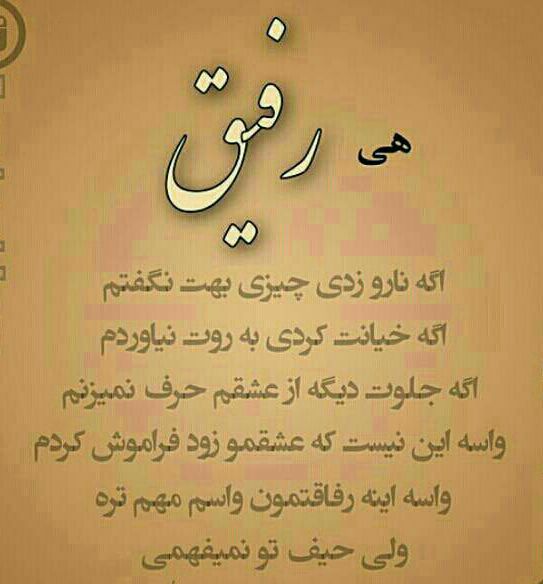 هی رفیق
اگه نارو زدی چیزی بهت نگفتم
اگه خیانت کردی به روت نیاوردم
اگه جلوت دیگه از عشقم حرف نمیزنم
واسه این نیست که عشقمو زود فراموش کردم
واسه اینه رفاقتمون واسم مهم تره
ولی حیف تو نمیفهمی